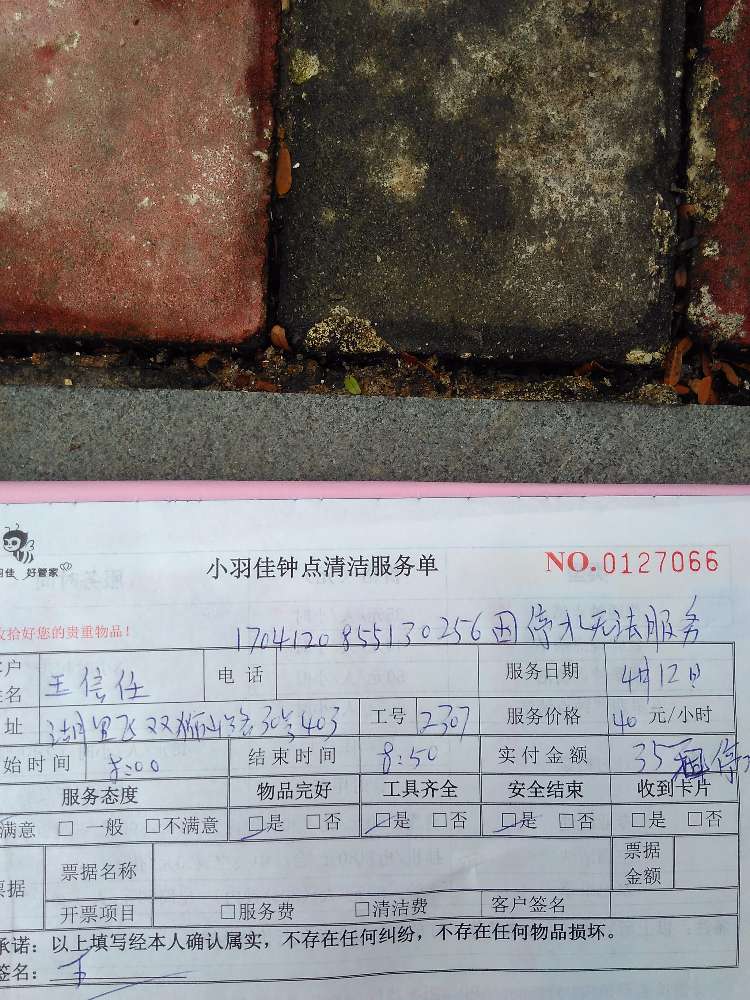 羽佳 好管家
小羽佳钟点清洁服务单
NO.0127066
收拾好您的贵重物品！
1704120855130256因停水无法服务
客户姓名 王信任 电话 服务日期 4月12日
址 30号403 工号 2307 服务价格 40 元/小时
始时间 8:00 结束时间 8:50 实付金额 35 停
服务态度 物品完好 工具齐全 安全结束 收到卡片
满意 □ 一般 □不满意 □是 □否 □是 □否 □是 □否 □是 □否
票据 票据名称 票据金额
开票项目 □服务费 □清洁费 客户签名
承诺：以上填写经本人确认属实，不存在任何纠纷，不存在任何物品损坏。
签名： 王